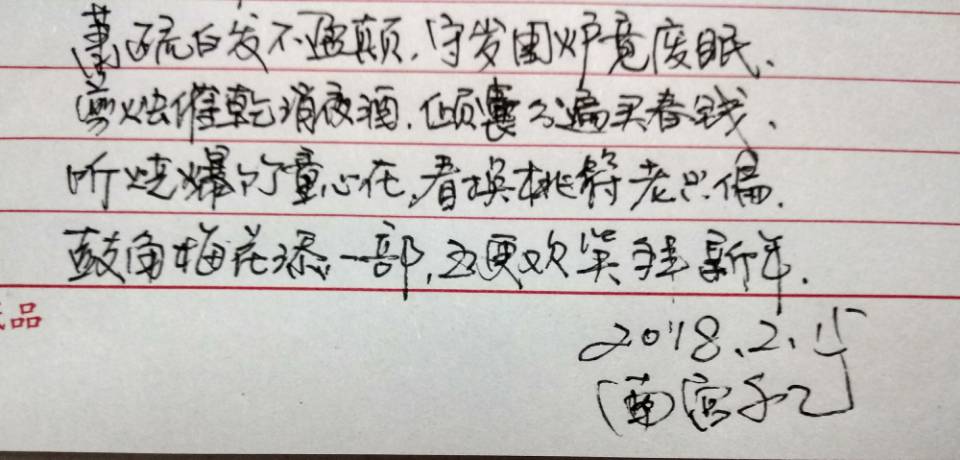 萧疏白发不盈颠,守岁围炉竟废眠、
剪烛催乾消夜酒,倾囊分遍买春钱、
听烧爆竹童心在,看换桃符老兴偏.
鼓角梅花添一部,五更欢笑拜新年.
品
2018.2.15